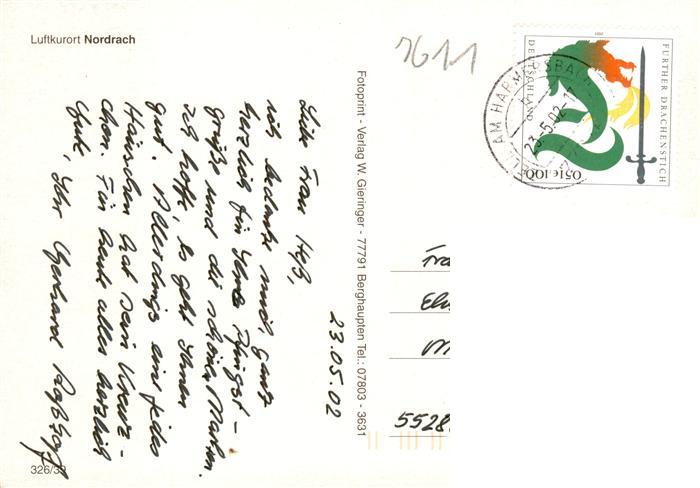 Luftkurort Nordrach
7611
FURTHER DRACHENSTICH
DEUTSCHLAND
0,51€ 100
2001
AM HARMERSBACH
23.-5.02-17
Fotoprint - Verlag W. Gieringer - 77791 Berghaupten Tel.: 07803 - 3631
23.05.02
Liebe Frau Heß,
ich bedanke mich ganz
herzlich für Ihre Pfingst-
grüße und die schönen Marken.
Ich hoffe, es geht Ihnen
gut. Allerdings ein jedes
Häuschen hat sein Kreuz-
chen. Für heute alles herzlich
Gute, Ihr Gerhard
Fra
5528
326/39